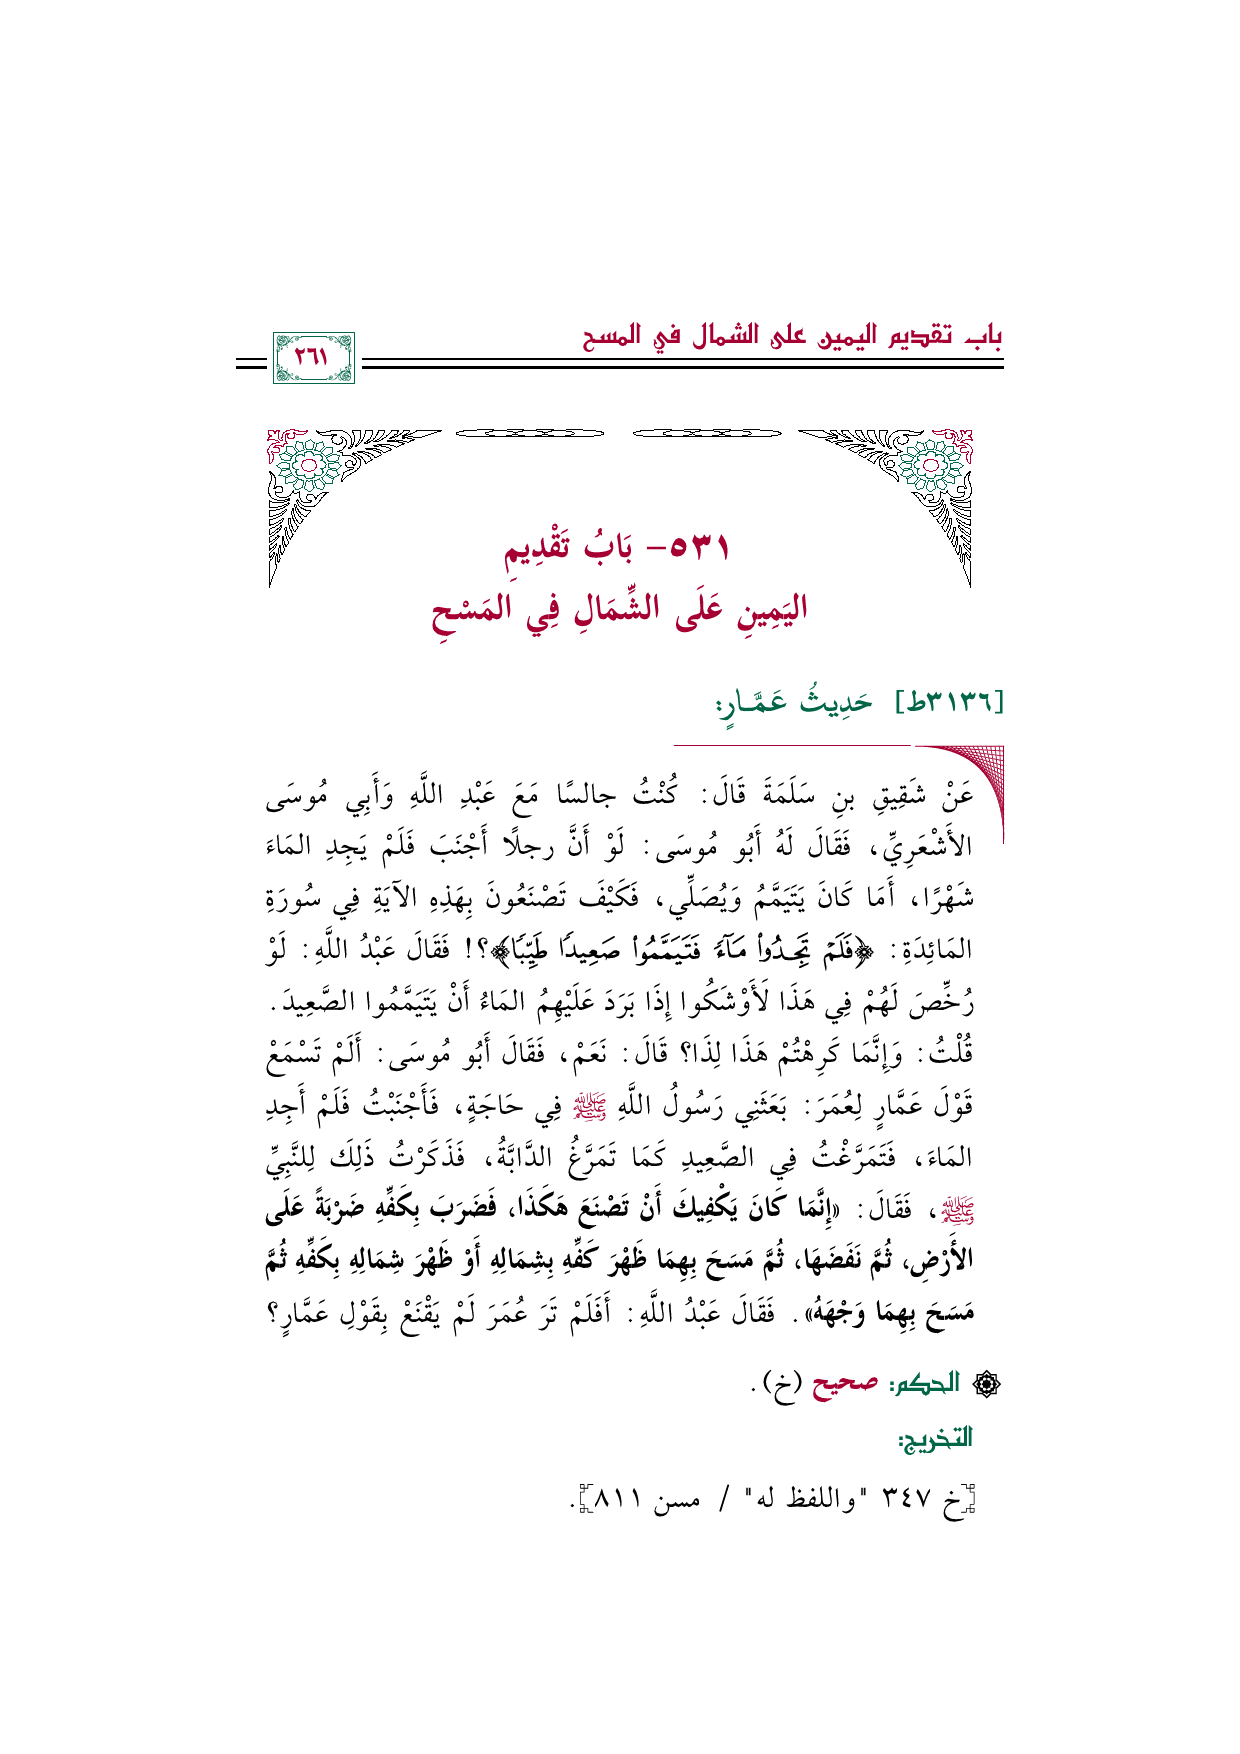 باب تقديم اليمين على الشمال في المسح
٢٦١
٥٣١- بَابُ تَقْدِيمِ
اليَمِينِ عَلَى الشِّمَالِ فِي المَسْحِ
[٣١٣٦ط] حَدِيثُ عَمَّــارٍ:
عَنْ شَقِيقِ بنِ سَلَمَةَ قَالَ: كُنْتُ جالسًا مَعَ عَبْدِ اللَّهِ وَأَبِي مُوسَى
الأَشْعَرِيِّ، فَقَالَ لَهُ أَبُو مُوسَى: لَوْ أَنَّ رجلًا أَجْنَبَ فَلَمْ يَجِدِ المَاءَ
شَهْرًا، أَمَا كَانَ يَتَيَمَّمُ وَيُصَلِّي، فَكَيْفَ تَصْنَعُونَ بِهَذِهِ الآيَةِ فِي سُورَةِ
المَائِدَةِ: ﴿فَلَمۡ تَجِدُواْ مَآءٗ فَتَيَمَّمُواْ صَعِيدٗا طَيِّبٗا﴾؟! فَقَالَ عَبْدُ اللَّهِ: لَوْ
رُخِّصَ لَهُمْ فِي هَذَا لَأَوْشَكُوا إِذَا بَرَدَ عَلَيْهِمُ المَاءُ أَنْ يَتَيَمَّمُوا الصَّعِيدَ.
قُلْتُ: وَإِنَّمَا كَرِهْتُمْ هَذَا لِذَا؟ قَالَ: نَعَمْ، فَقَالَ أَبُو مُوسَى: أَلَمْ تَسْمَعْ
قَوْلَ عَمَّارٍ لِعُمَرَ: بَعَثَنِي رَسُولُ اللَّهِ ﷺ فِي حَاجَةٍ، فَأَجْنَبْتُ فَلَمْ أَجِدِ
المَاءَ، فَتَمَرَّغْتُ فِي الصَّعِيدِ كَمَا تَمَرَّغُ الدَّابَّةُ، فَذَكَرْتُ ذَلِكَ لِلنَّبِيِّ
ﷺ، فَقَالَ: «إِنَّمَا كَانَ يَكْفِيكَ أَنْ تَصْنَعَ هَكَذَا، فَضَرَبَ بِكَفِّهِ ضَرْبَةً عَلَى
الأَرْضِ، ثُمَّ نَفَضَهَا، ثُمَّ مَسَحَ بِهِمَا ظَهْرَ كَفِّهِ بِشِمَالِهِ أَوْ ظَهْرَ شِمَالِهِ بِكَفِّهِ ثُمَّ
مَسَحَ بِهِمَا وَجْهَهُ». فَقَالَ عَبْدُ اللَّهِ: أَفَلَمْ تَرَ عُمَرَ لَمْ يَقْنَعْ بِقَوْلِ عَمَّارٍ؟
الحكم: صحيح (خ).
التخريج:
[خ ٣٤٧ "واللفظ له" / مسن ٨١١].